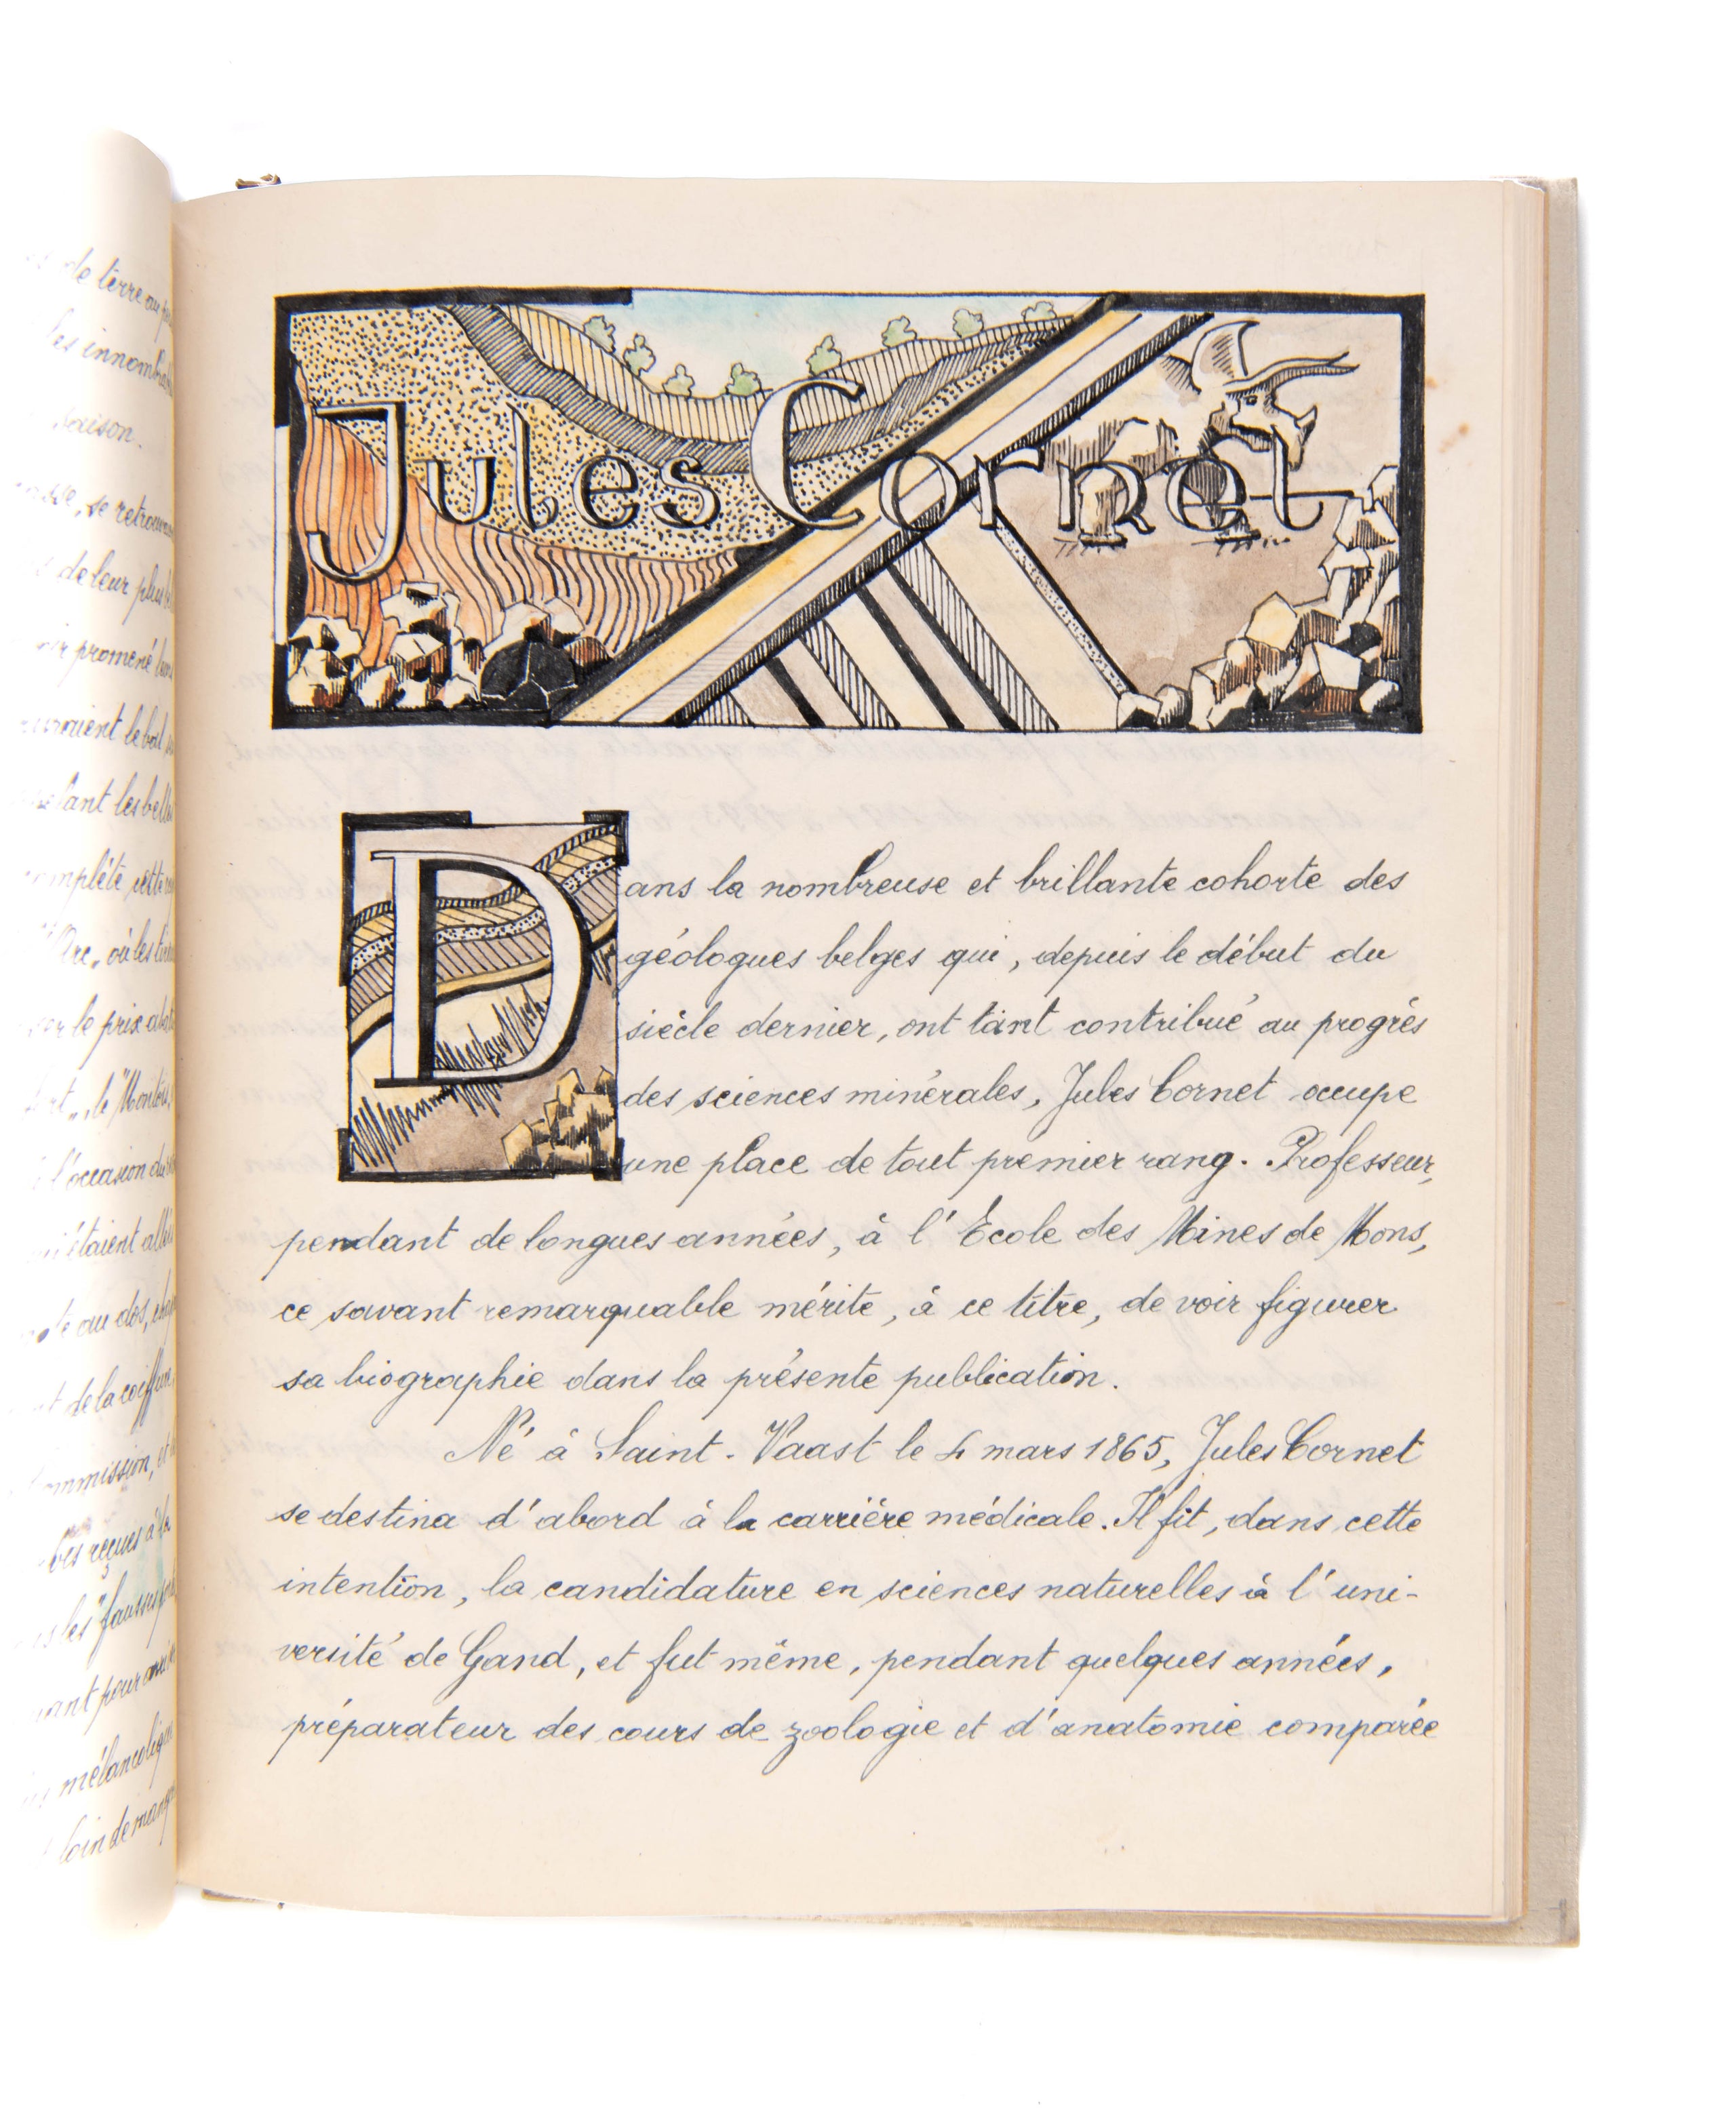 de terre au
les innomb
saison.
se retrouv
de leur plus
promené
raient le bal
lant les bell
complète, cette
Arc„ où les
le prix
le "Mont
l'occasion du
étaient allé
au dos,
de la coiffure
ommission, et
reçues à la
les "fausses
ant pour
mélancoliq
loin de
Jules Cornet
Dans la nombreuse et brillante cohorte des
géologues belges qui, depuis le début du
siècle dernier, ont tant contribué au progrès
des sciences minérales, Jules Cornet occupe
une place de tout premier rang. Professeur,
pendant de longues années, à l'Ecole des Mines de Mons,
ce savant remarquable mérite, à ce titre, de voir figurer
sa biographie dans la présente publication.
Né à Saint-Vaast le 4 mars 1865, Jules Cornet
se destina d'abord à la carrière médicale. Il fit, dans cette
intention, la candidature en sciences naturelles à l'uni-
versité de Gand, et fut même, pendant quelques années,
préparateur des cours de zoologie et d'anatomie comparée